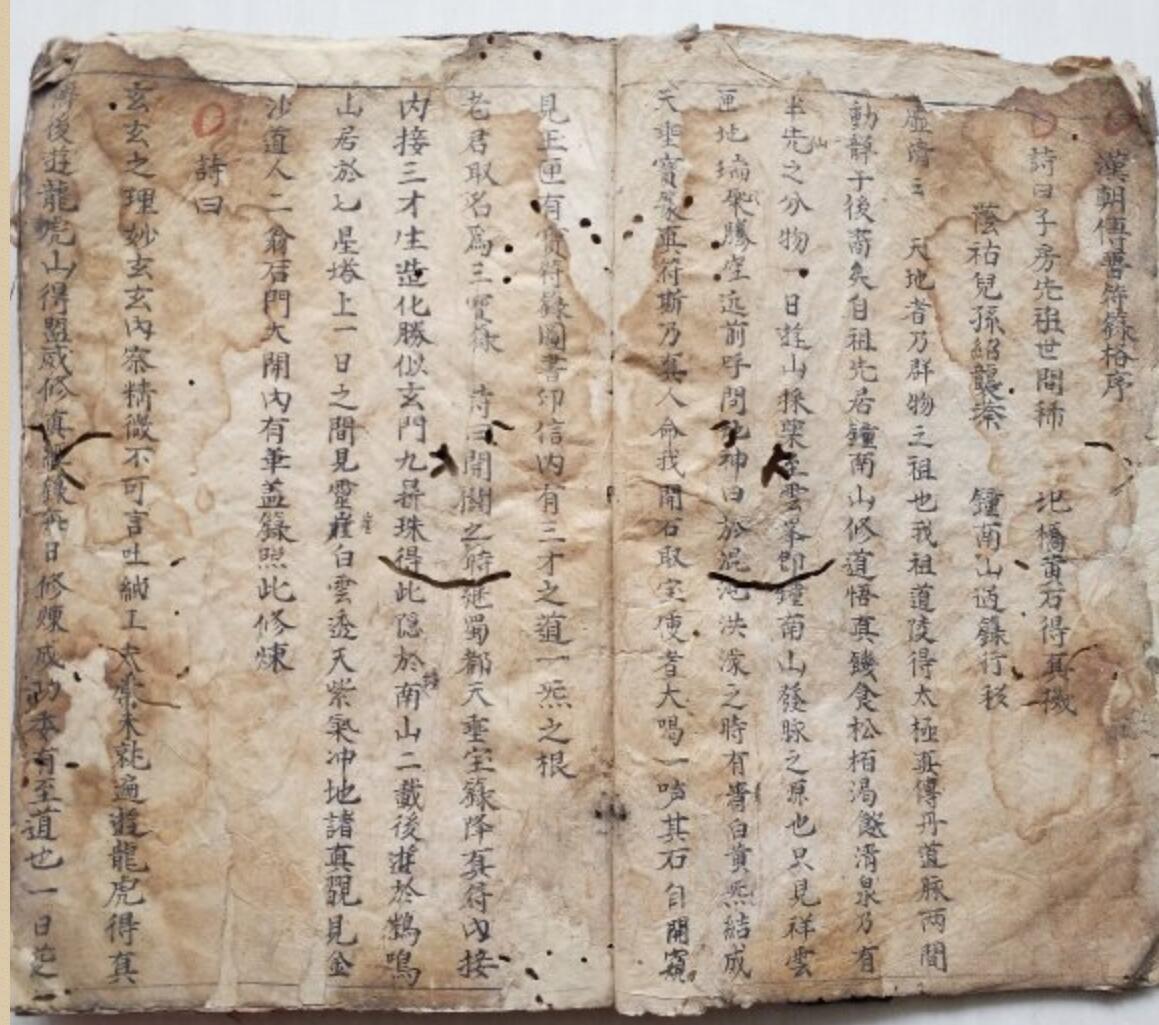 漢朝傳晋符籙格序
詩曰子房先祖世間稀 圯橋黄石得真機
蔭祐兒孫紹襲 鐘南山過籙行
虛 天地者乃群物之祖也我祖道陵得太極真傳丹道脉兩間
動靜于後 自祖先居鐘南山修道悟真饑食松栢渴飲清泉乃有
先之分物一日遊山採藥至雲峯即鐘南山發脉之原也只見祥雲
匝地瑞氣騰空近前呼問神曰於混沌洪濛之時有青白黄炁結成
天垂寶籙真符斯乃真人命我開石取寶使者大喝一声其石自開窺
見玉匣有寶符籙圖書印信內有三才之道一炁之根
老君取名爲三寶籙 詩曰開闢之時 蜀都天垂宝籙降真符內接
內接三才生造化勝似玄門九昇珠得此隠於南山二載後遊於鶴鳴
山居於七星塔上一日之間見靈崖白雲透天紫氣冲地諸真覩見金
沙道人二翁石門大開內有華盖籙照此修煉
詩曰
玄玄之理妙玄玄內察精微不可言吐納工夫 未 遍遊龍虎得真
後遊龍虎山得盟威修真 籙 日修煉成功本有至道也一日